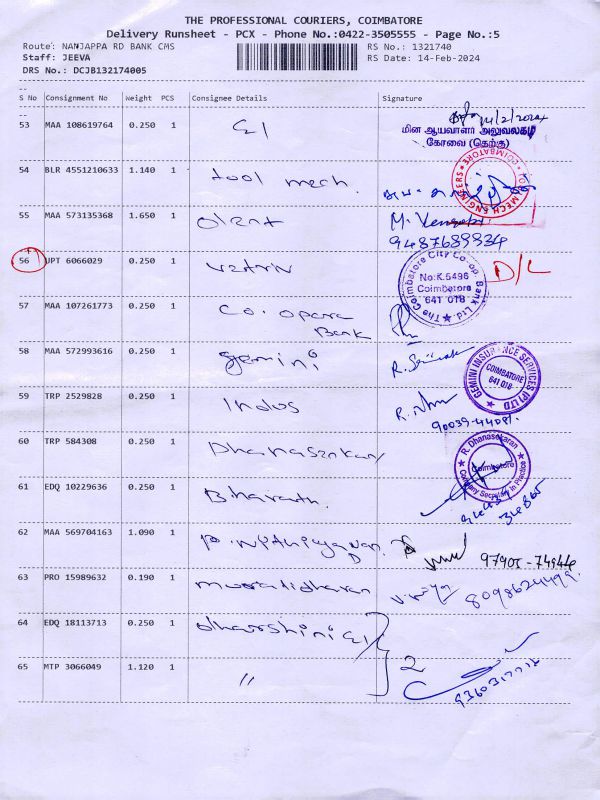 THE PROFESSIONAL COURIERS, COIMBATORE
Delivery Runsheet - PCX - Phone No.:0422-3505555 - Page No.:5
Route: NANJAPPA RD BANK CMS RS No.: 1321740
Staff: JEEVA RS Date: 14-Feb-2024
DRS No.: DCJB132174005
S No Consignment No Weight PCS Consignee Details Signature
53 MAA 108619764 0.250 1 EI 14/2/2024
மின் ஆய்வாளர் அலுவலகம்
கோவை (தெற்கு)
54 BLR 4551210633 1.140 1 tool mech.
TOOL MECH ENGINEERS COIMBATORE
55 MAA 573135368 1.650 1 M.
9487689934
56 UPT 6066029 0.250 1 D/L
The Coimbatore City Co-op. Bank Ltd.
No:K.5496
Coimbatore
641 018
57 MAA 107261773 0.250 1 Co. opara
Bank
58 MAA 572993616 0.250 1 gemini
GEMINI INSURANCE SERVICES (P) LTD
COIMBATORE
641 018
59 TRP 2529828 0.250 1 Indus
90039-44081.
60 TRP 584308 0.250 1 Dhanasekaran
R. Dhanasekaran
Coimbatore
Company Secretary in Practice
61 EDQ 10229636 0.250 1 Bharath.
62 MAA 569704163 1.090 1 97905-74944
63 PRO 15989632 0.190 1 muralidharan 8098624499.
64 EDQ 18113713 0.250 1 dharshini EI
2
65 MTP 3066049 1.120 1 "